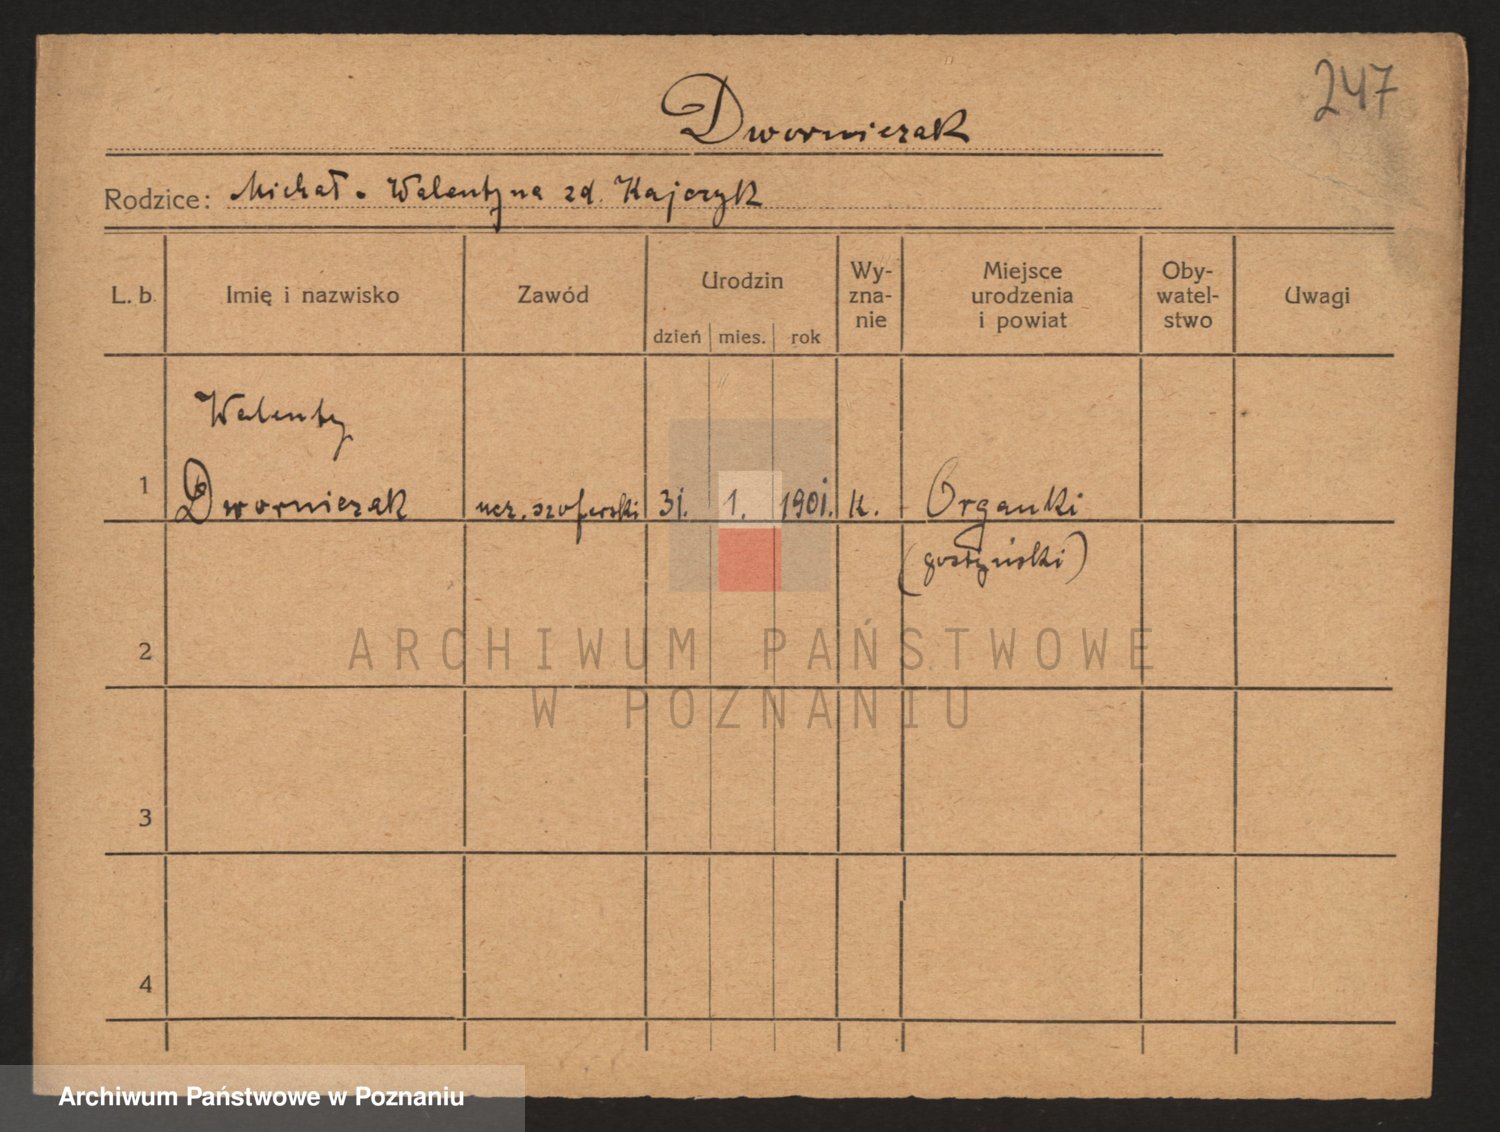 247
Dworniczak
Rodzice: Michał. Walentyna zd. Kajczyk
L. b. Imię i nazwisko Zawód Urodzin dzień mies. rok Wy-zna-nie Miejsce urodzenia i powiat Oby-watel-stwo Uwagi
Walenty
1 Dworniczak ucz. szoferski 31. 1. 1901. k. Organki
(gostyński)
2
ARCHIWUM PAŃSTWOWE
W POZNANIU
3
4
Archiwum Państwowe w Poznaniu